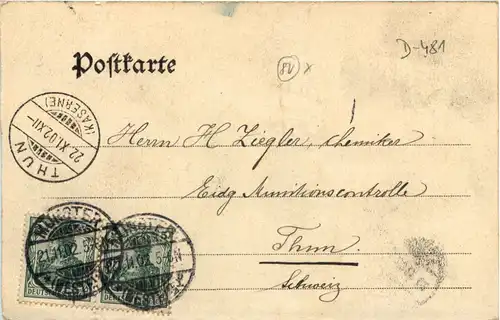 D-481
Postkarte
THUN
22.XI.02.XII-
(KASERNE)
Herrn H Ziegler, chemiker
Eidg Munitionscontrolle
Thun
Schweiz
MÜNSTER
21.11.02
(WESTF.)